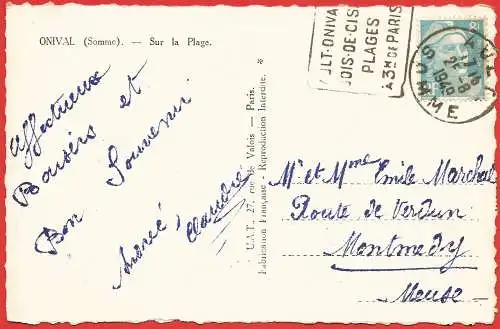 ONIVAL (Somme). - Sur la Plage.
Affectueux
Baisers et
Bon Souvenir
André, Claudre
U.A.T. 27, rue de Valois - Paris.
Fabrication Française - Reproduction Interdite.
AULT-ONIVAL
BOIS-DE-CISE
PLAGES
A 3H DE PARIS
AULT
21-8
1949
SOMME
Mr et Mme Emile Marchal
Route de Verdun
Montmedy
Meuse